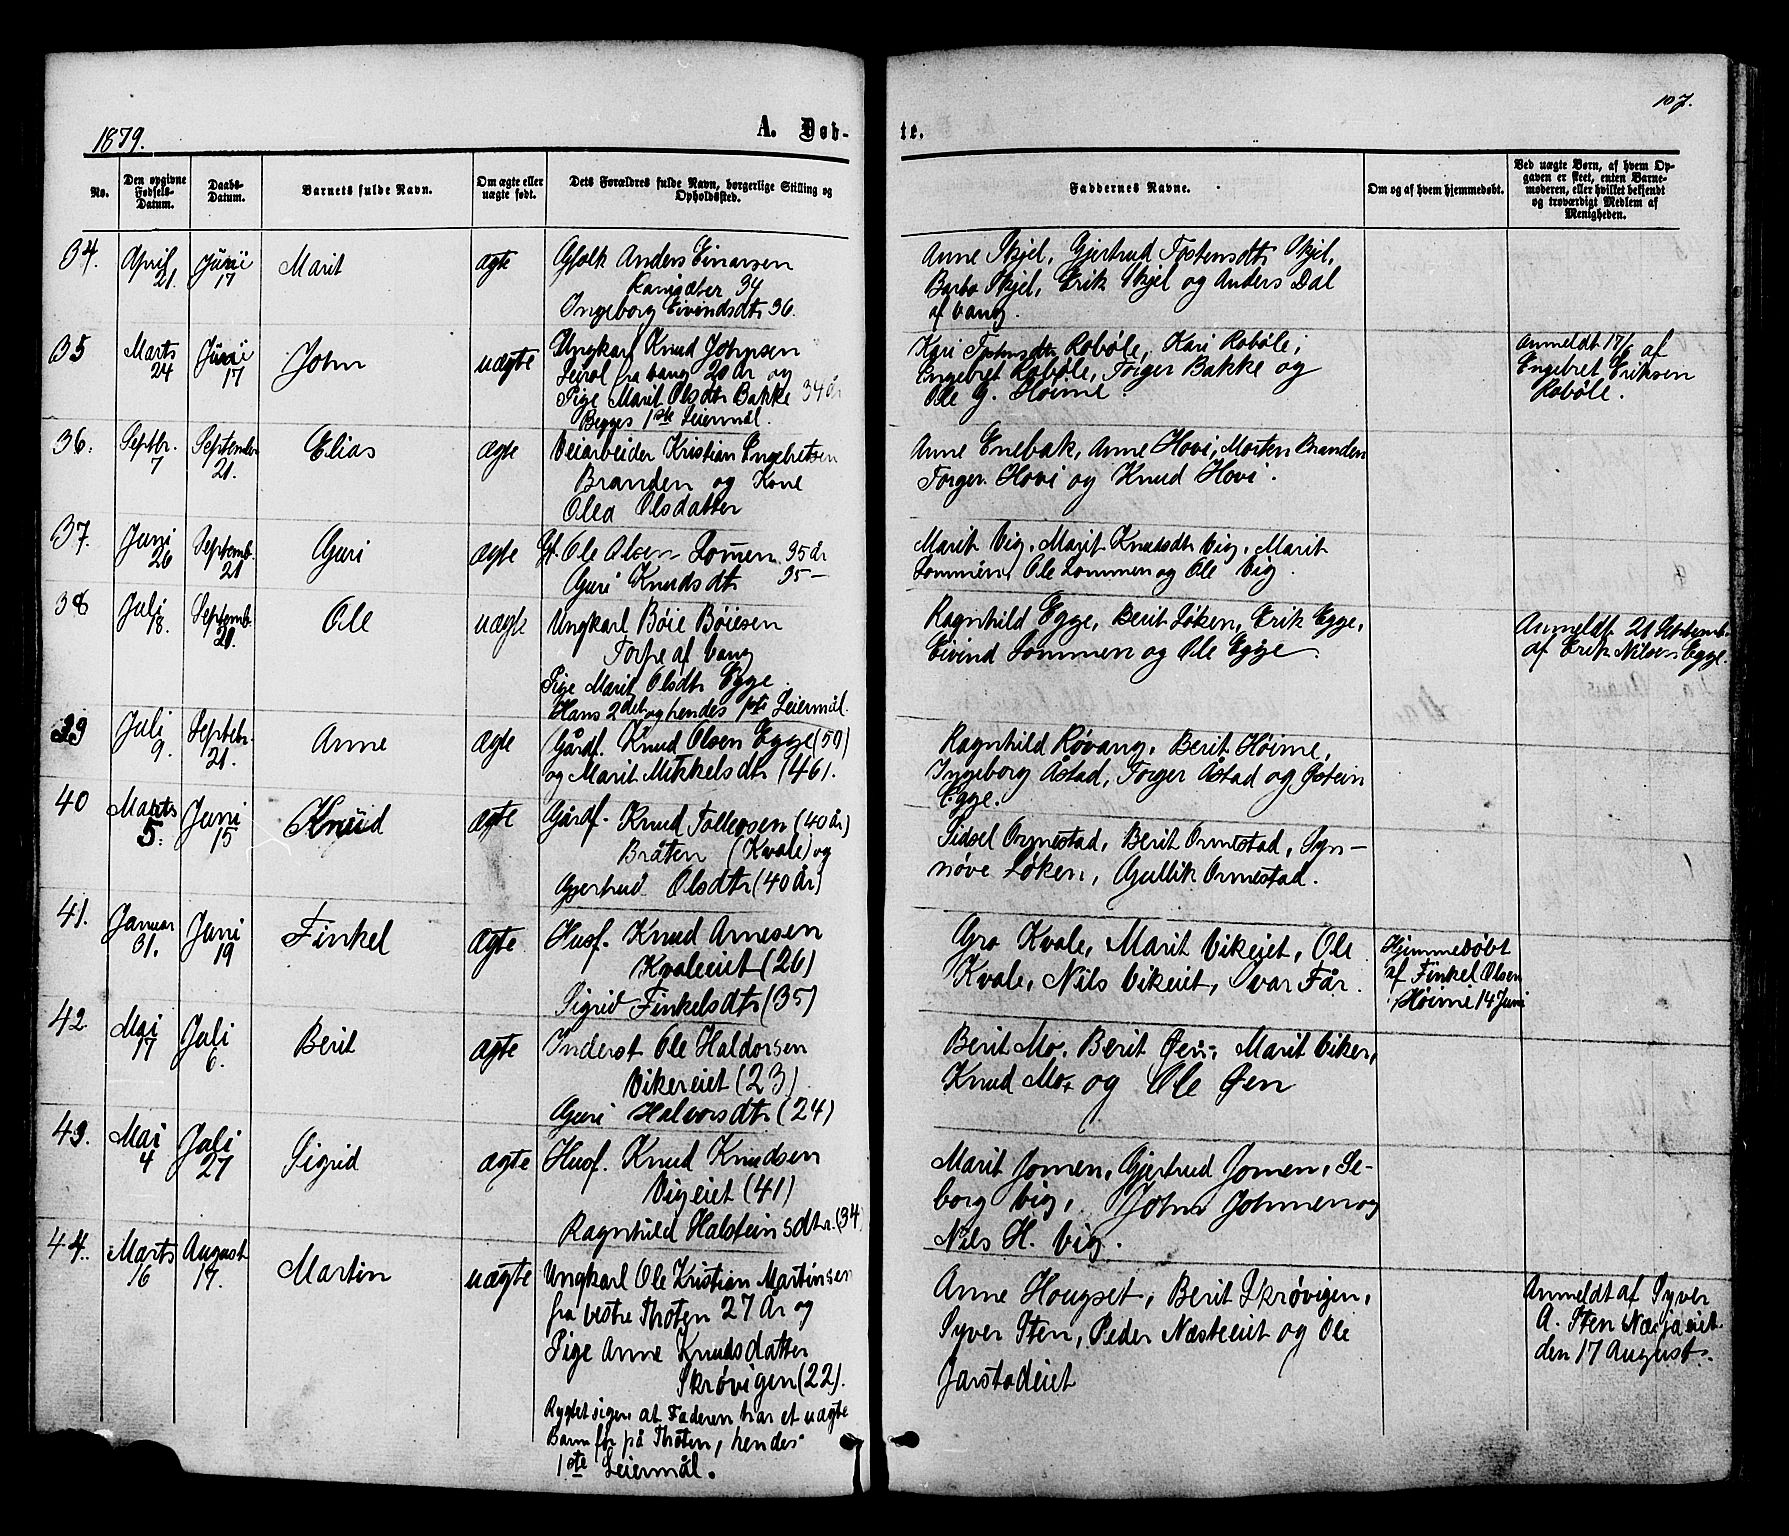 107.
1879.
A. Døb-
te.
No.
Den opgivne Fødsels-Datum.
Daabs-Datum.
Barnets fulde Navn.
Om ægte eller uægte født.
Dets Forældres fulde Navn, borgerlige Stilling og Opholdssted.
Faddernes Navne.
Om og af hvem hjemmedøbt.
Ved uægte Børn, af hvem Op-
gaven er skeet, enten Barne-
moderen, eller hvilket bekjendt
og troværdigt Medlem af
Menigheden.
34. April 21. Junii 17 Marit ægte
Gfolk Anders Einarsen
34
Ingeborg Eivindsdtr 36.
Anne Skjel, Gjertrud Tostensdtr Skjel,
Barbo Skjel, Erik Skjel og Anders Dal
af Vang.
35 Marts 24 Junii 17 John uægte
Ungkarl Knud Johnsen
Leirol fra Vang 20 år og
Pige Marit Olsdtr Bakke 34 år
Begges 1ste Leiermål.
Kari Tostensdtr Robøle, Kari Robøle,
Engebret Robøle, Torger Bakke og
Ole G. Høime.
Anmeldt 17/ af
Engebret Eriksen
Robøle.
36. Septbr. 7 September 21. Elias ægte
Veiarbeider Kristian Engebretsen
Branden og Kone
Olea Olsdatter
Anne Enebak, Anne Hovi, Morten Branden
Torger Hovi og Knud Hovi.
37. Juni 26 Septemb. 21 Guri ægte
Gf. Ole Olsen Lomen 35 år
Guri Knudsdtr 35 —
Marit Vig, Marit Knudsdtr Vig, Marit
Lommen, Ole Lommen og Ole Vig.
38 Juli 18. Septemb. 21. Ole uægte
Ungkarl Bøie Bøiesen
Torpe af Vang
Pige Marit Olsdtr Egge.
Hans 2det og hendes 1ste Leiermål.
Ragnhild Egge, Berit Løken, Erik Egge,
Eivind Lommen og Ole Egge.
Anmeldt 21 Septemb.
af Erik Nilsen Egge.
39 Juli 9. Septebr. 21. Anne ægte
Gårdf. Knud Olsen Egge (50)
og Marit Mikkelsdtr (46).
Ragnhild Røvang, Berit Høime,
Ingeborg Åstad, Torger Åstad og Østein
Egge.
40 Marts 5. Juni 15 Knud ægte
Gårdf. Knud Tollevsen (40 år)
Bråten (Kvale) og
Gjertrud Olsdtr (40 år)
Sidsel Ormestad, Berit Ormestad, Syn-
nøve Løken, Gullik Ormestad.
41. Januar 31. Juni 19 Finkel ægte
Husf. Knud Arnesen
Kvaleeiet (26)
Sigrid Finkelsdtr (35)
Gro Kvale, Marit Vikeiet, Ole
Kvale, Nils Vikeiet, Ivar Får.
Hjemmedøbt
af Finkel Olsen
Høime 14 Juni
42 Mai 17 Juli 6. Berit ægte
Inderst Ole Haldorsen
Vikereiet (23)
Guri Halvorsdtr (24)
Berit Mo, Berit Øen, Marit Viker,
Knud Mo og Ole Øen
43. Mai 4 Juli 27 Sigrid ægte
Husf. Knud Knudsen
Vigeiet (41)
Ragnhild Halsteinsdtr. (34
Marit Jomen, Gjertrud Jomen, Se-
borg Vig, John Johmen og
Nils H. Vig.
44. Marts 16 August 17. Martin uægte
Ungkarl Ole Kristian Martinsen
fra Vestre Thoten 27 År og
Pige Anne Knudsdatter
Skrøvigen (22).
Rygtet siger at Faderen har et uægte
Barn før på Thoten, hendes
1ste Leiermål.
Anne Hougset, Berit Skrøvigen,
Syver Sten, Peder Næsteeiet og Ole
Jarstadeiet
Anmeldt af Syver
A. Sten
den 17 August.